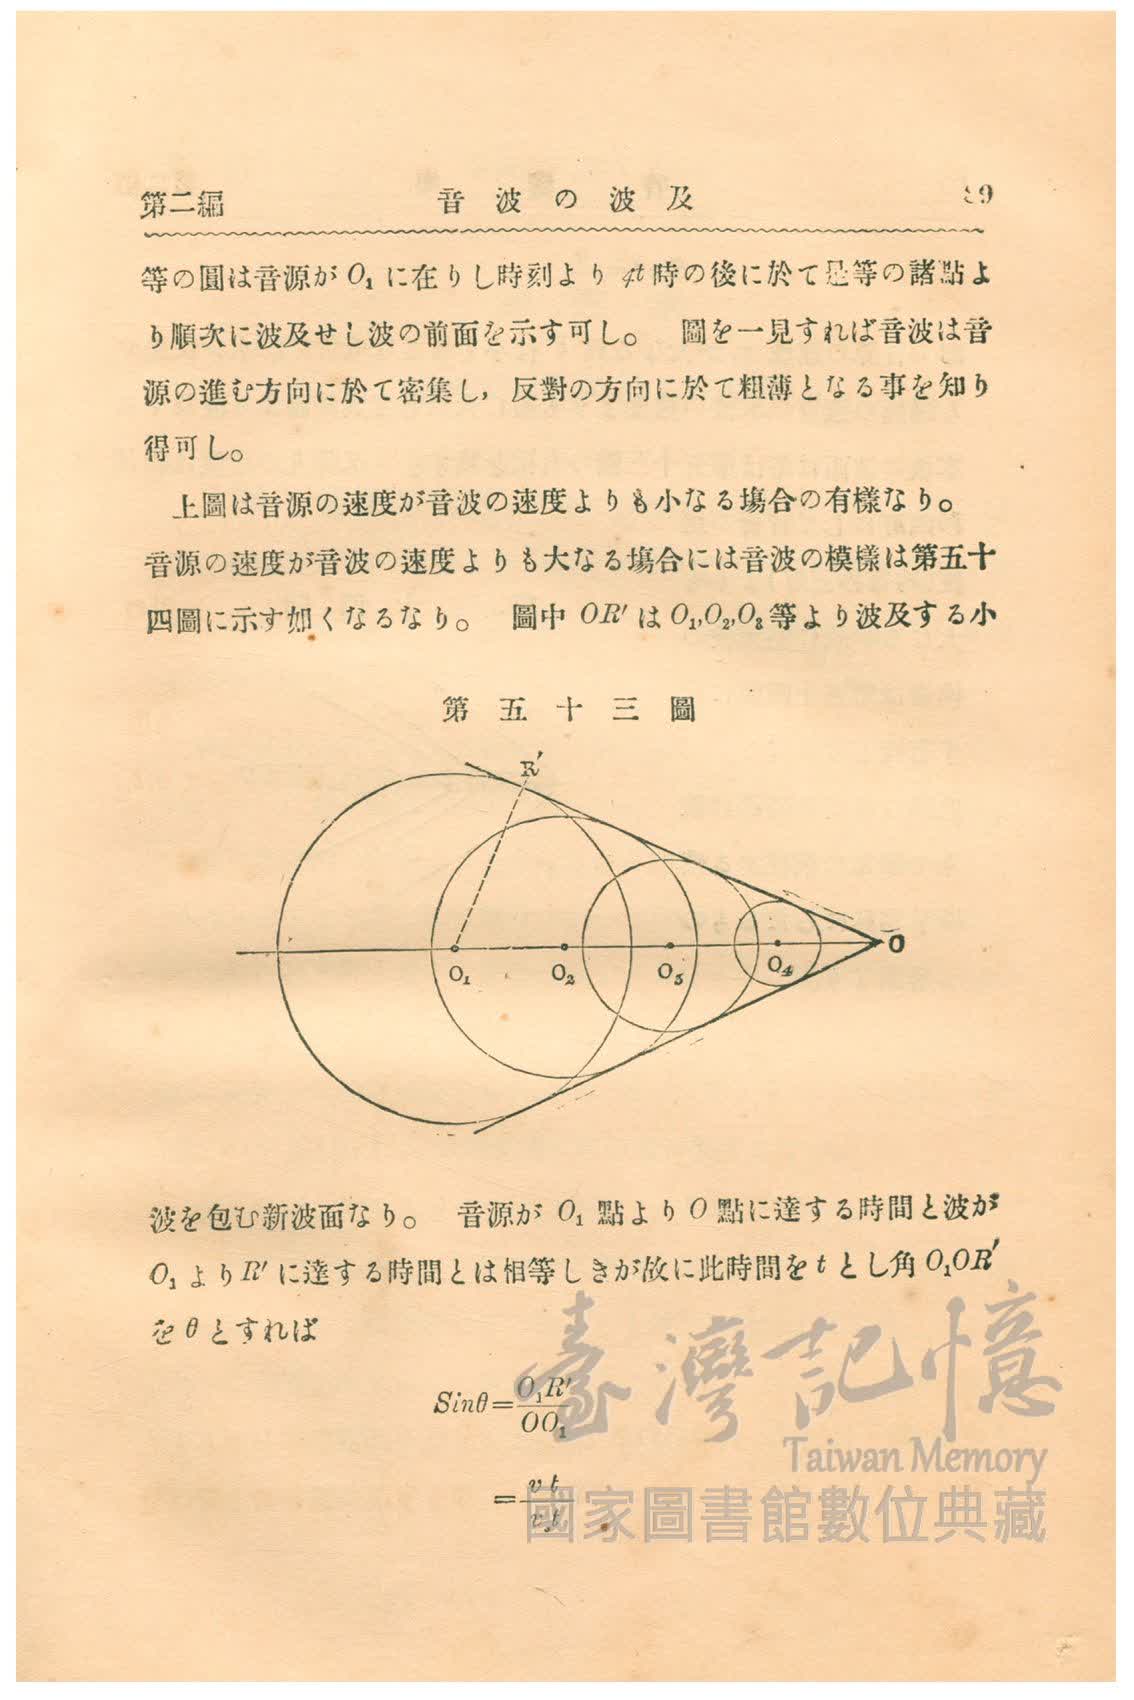 第二編 音波の波及 89
等の圓は音源が O₁ に在りし時刻より 4t 時の後に於て是等の諸點よ
り順次に波及せし波の前面を示す可し。 圖を一見すれば音波は音
源の進む方向に於て密集し, 反對の方向に於て粗薄となる事を知り
得可し。
上圖は音源の速度が音波の速度よりも小なる塲合の有樣なり。
音源の速度が音波の速度よりも大なる塲合には音波の模樣は第五十
四圖に示す如くなるなり。 圖中 OR′ は O₁,O₂,O₃ 等より波及する小
第五十三圖
R′
O₁ O₂ O₃ O₄ O
波を包む新波面なり。 音源が O₁ 點より O 點に達する時間と波が
O₁ より R′ に達する時間とは相等しきが故に此時間を t とし角 O₁OR′
を θ とすれば
Sinθ=O₁R′/OO₁
=vt/vₛt
臺灣記憶
Taiwan Memory
國家圖書館數位典藏